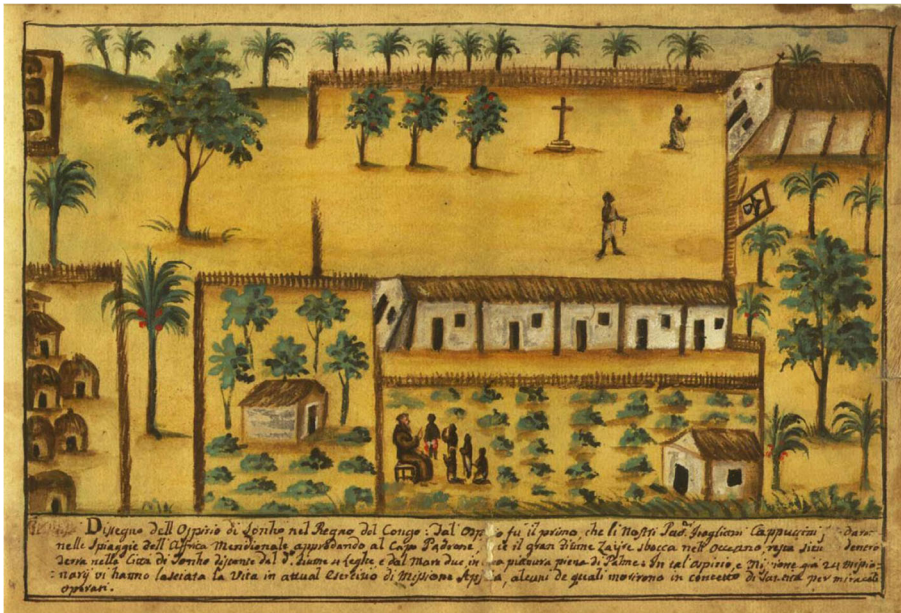 Dissegno dell'Ospicio di Sonho nel Regno del Congo: Tal' Osp o fu il primo, che li Nostri Pad. Capuccini
nelle Spiaggie dell'Affrica Meridionale approdando al Capo Padrone, e il gran fiume Zaire sbocca nell'Oceano, resta dentro
Terra nella Città di Sonho distante dal d. fiume leghe e dal Mare due, in pianura piena di Palme: In tal Ospicio, e già
narij vi hanno lasciata la Vita in attual Esercizio di Missione alcuni de quali morirono in concetto di Santità per miracoli
operati.